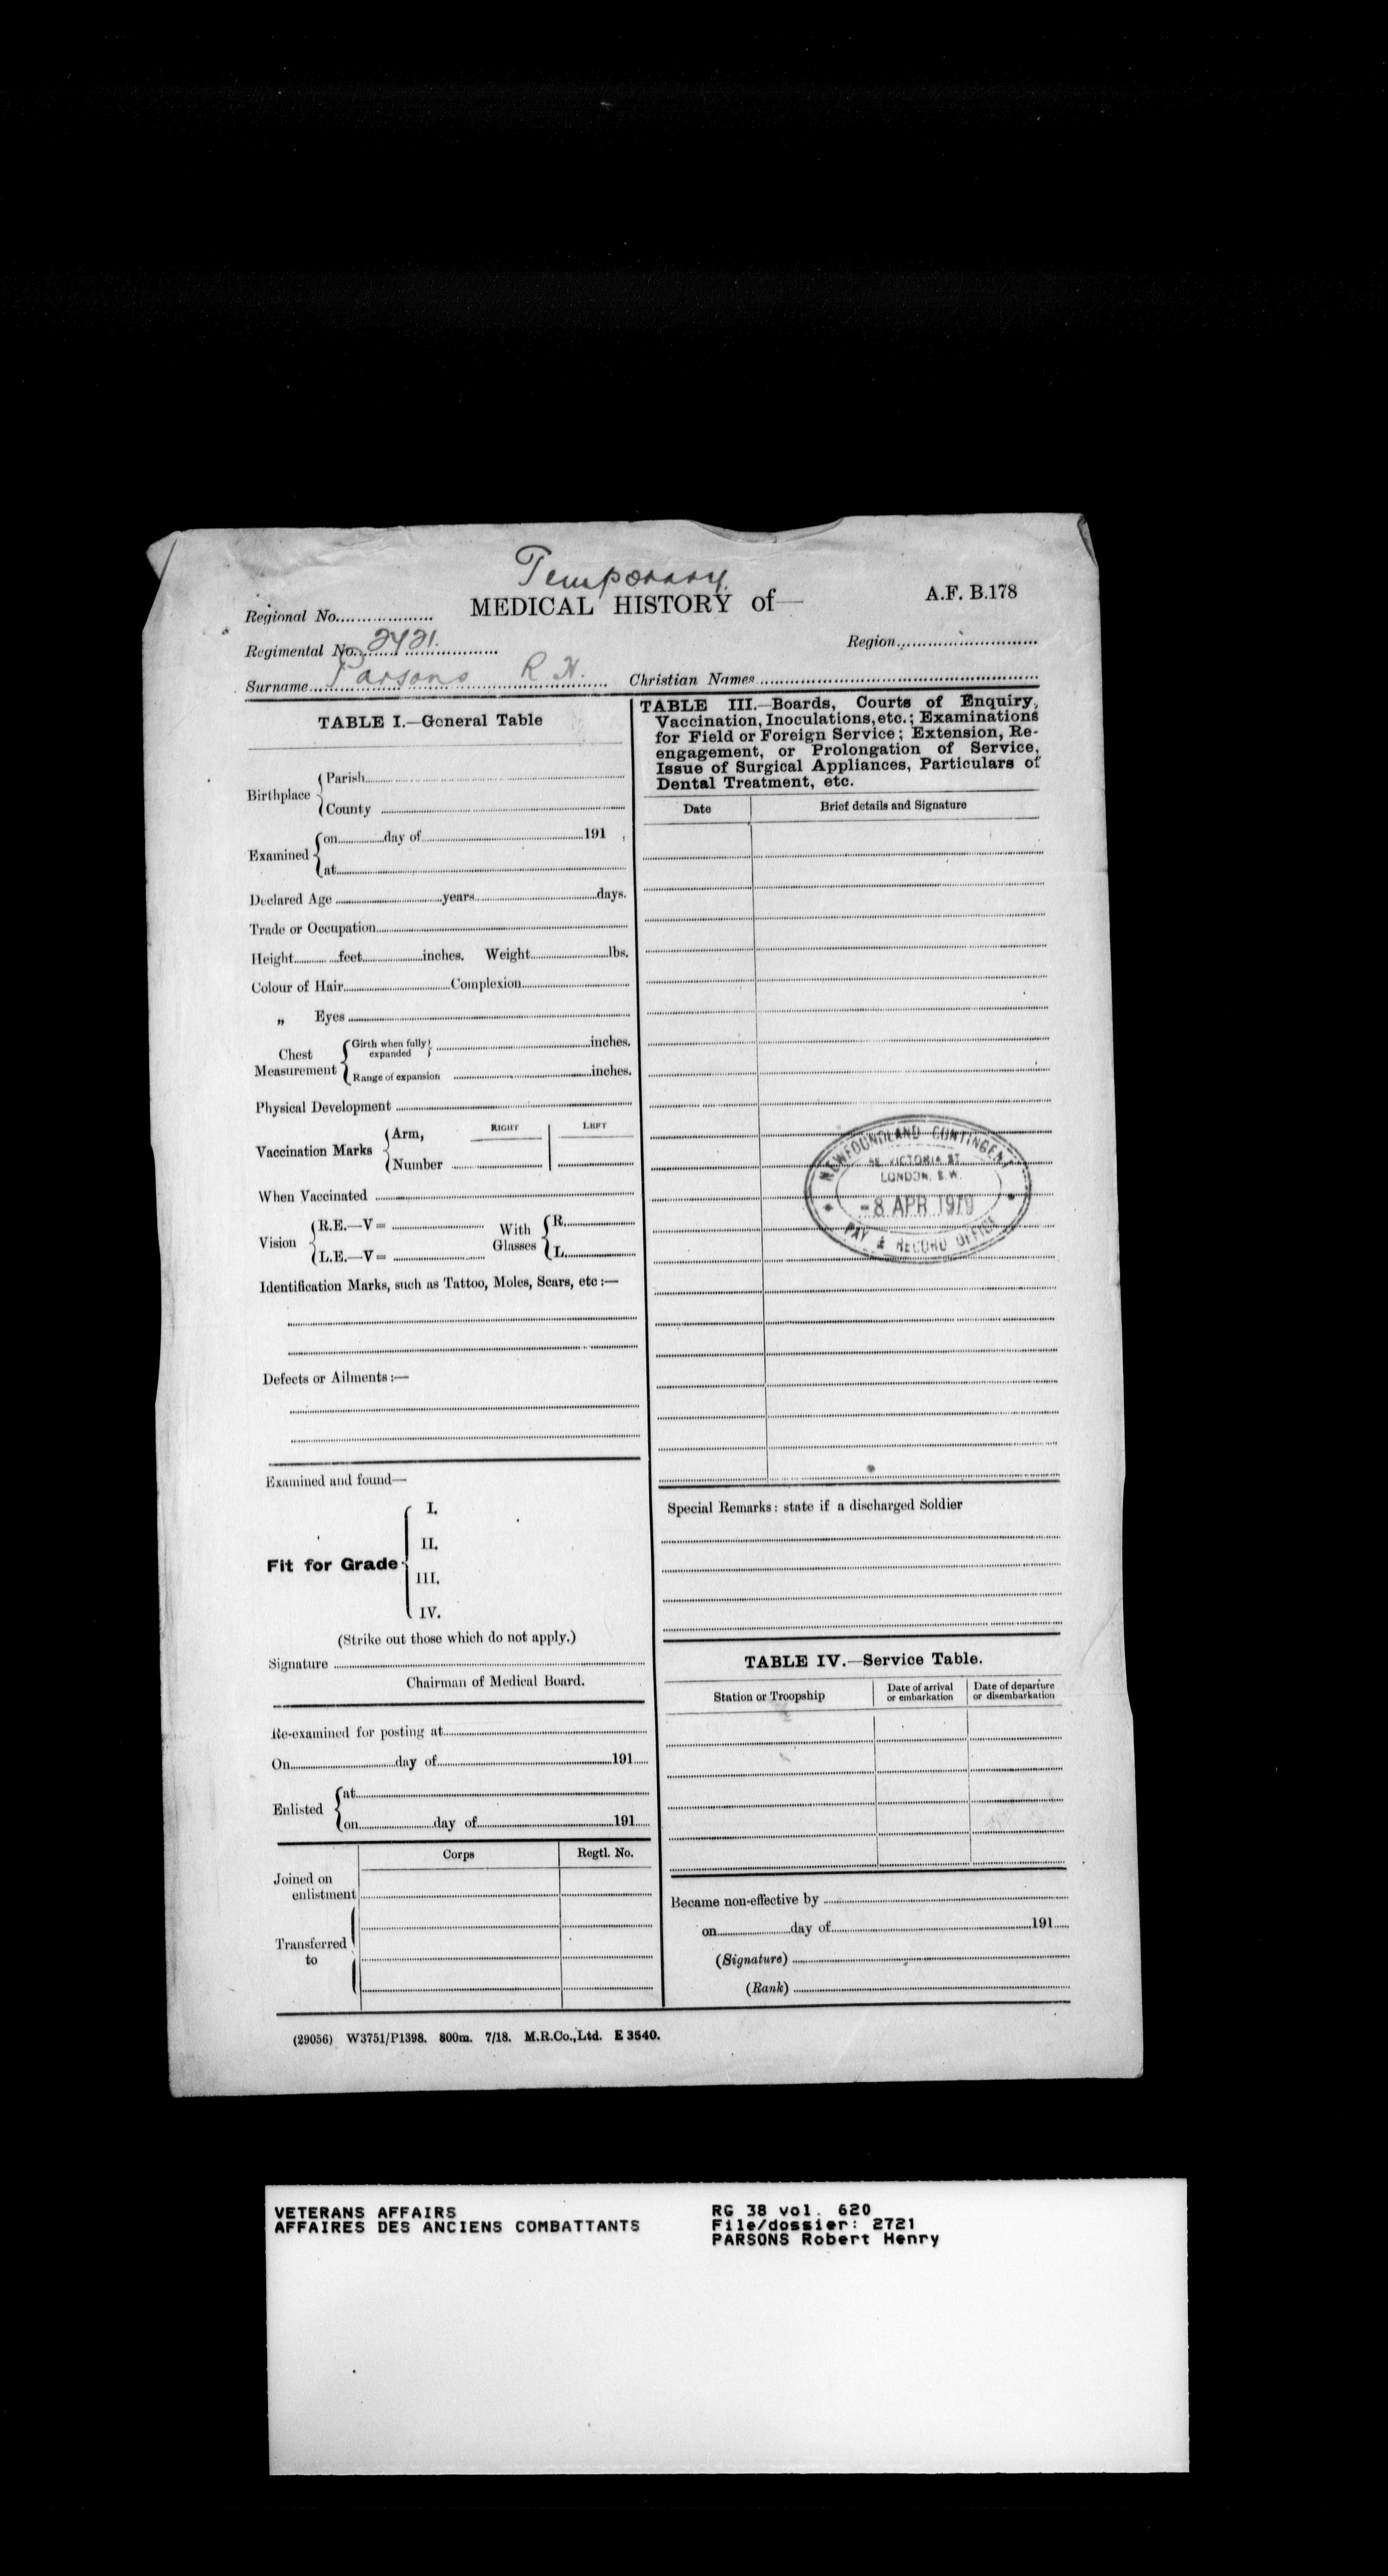 Temporary
MEDICAL HISTORY of—
A.F. B.178
Regional No...................
Regimental No. 2721.
Region...........................
Surname Parsons R H.
Christian Names...........................
TABLE I.—General Table
Birthplace { Parish
County
Examined { on..........day of..........191
at
Declared Age..........years..........days.
Trade or Occupation
Height..........feet..........inches. Weight..........lbs.
Colour of Hair..........Complexion
„ Eyes
Chest Measurement { Girth when fully expanded } ..........inches.
Range of expansion ..........inches.
Physical Development
Vaccination Marks { Arm, RIGHT LEFT
Number
When Vaccinated
Vision { R.E.—V= With Glasses { R.
L.E.—V= L.
Identification Marks, such as Tattoo, Moles, Scars, etc :—
Defects or Ailments :—
Examined and found—
Fit for Grade { I.
II.
III.
IV.
(Strike out those which do not apply.)
Signature
Chairman of Medical Board.
Re-examined for posting at
On..........day of..........191
Enlisted { at
on..........day of..........191
Corps Regtl. No.
Joined on
enlistment
Transferred
to
TABLE III.—Boards, Courts of Enquiry,
Vaccination, Inoculations, etc.; Examinations
for Field or Foreign Service; Extension, Re-
engagement, or Prolongation of Service,
Issue of Surgical Appliances, Particulars of
Dental Treatment, etc.
Date Brief details and Signature
NEWFOUNDLAND CONTINGENT
VICTORIA ST.
LONDON, S.W.
-8 APR 1919
PAY & RECORD OFFICE
Special Remarks: state if a discharged Soldier
TABLE IV.—Service Table.
Station or Troopship
Date of arrival
or embarkation
Date of departure
or disembarkation
Became non-effective by
on..........day of..........191
(Signature)
(Rank)
(29056) W3751/P1398. 800m. 7/18. M.R.Co.,Ltd. E 3540.
VETERANS AFFAIRS
AFFAIRES DES ANCIENS COMBATTANTS
RG 38 vol. 620
File/dossier: 2721
PARSONS Robert Henry